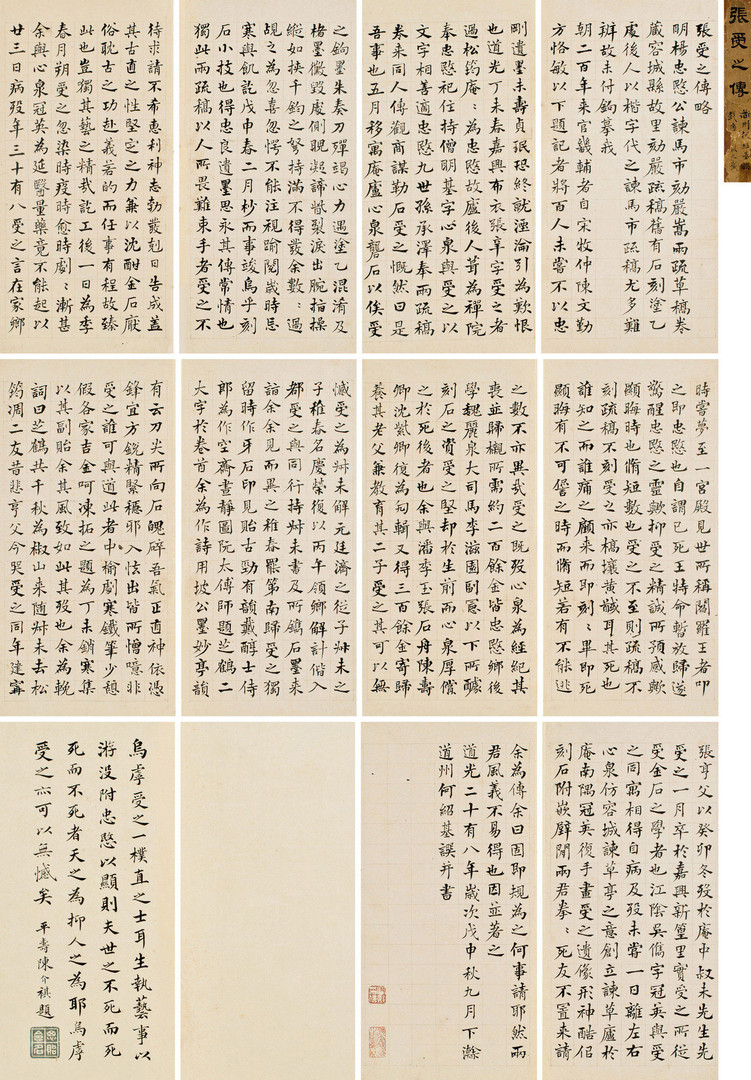 張受之傳
張受之傳略
明楊忠愍公諫馬市劾嚴嵩兩疏草稿卷
藏容城縣故里劾嚴疏稿舊有石刻塗乙
處後人以楷字代之諫馬市疏稿尤多難
辨故未付鉤摹我
朝二百年來官畿輔者自宋牧仲陳文勤
方恪敏以下題記者將百人未嘗不以忠
剛遺墨未壽貞珉恐終就湮淪引為歎恨
也道光丁未春嘉興布衣張辛字受之者
過松筠庵:為忠愍故廬後人葺為禪院
奉忠愍祀住持僧明基字心泉與受之以
文字相善適忠愍九世孫承澤奉兩疏稿
卷來同人傳觀商謀勒石受之慨然曰是
吾事也五月移寓庵廬心泉礱石以俟受
之鉤墨朱奏刀殫竭心力遇塗乙混淆及
楮墨黴毀處側睨凝諦眥裂淚出腕指操
縱如挾千鈞之弩持滿不得發余數:過
覘之為忽喜忽愕不能注視踰閱歲時忌
寒與飢訖戊申春二月杪而事竣烏乎刻
石小技也得忠良遺墨思永其傳常情也
獨此兩疏稿以人所畏難束手者受之不
待求請不希惠利神志勃叢剋日告成蓋
其古直之性堅定之力兼以沈酣金石厭
俗耽古之功赴義若的而任事有程故臻
此也豈獨其藝之精哉訖工後一日為季
春月朔受之忽染時疫時愈時劇:漸甚
余與心泉冠英為延醫量藥竟不能起以
廿三日病歿年三十有八受之言在家鄉
時嘗夢至一宮殿見世所稱閻羅王者叩
之即忠愍也自謂已死王特命暫放歸遂
驚醒忠愍之靈歟抑受之精誠所預感歟
顯晦時也脩短數也受之不至則疏稿不
刻疏稿不刻受之亦槁壤黃馘耳其死也
誰知之而誰痛之顧來而即刻:畢即死
顯晦有不可訾之時而脩短若有不能逃
之數不亦異哉受之既歿心泉為經紀其
喪並歸櫬所需約二百餘金皆忠愍鄉後
學魏麗泉大司馬李滋園副憲以下所醵
刻石之資受之堅却於生前而心泉厚償
之於死後者也余與潘季玉張石舟陳壽
卿沈紫卿復為匄斬又得三百餘金寄歸
養其老父兼教育其二子受之其可以無
憾受之為叔未解元廷濟之從子叔未之
子穉春名慶榮復以丙午領鄉解計偕入
都受之與同行持叔未書及所鐫石墨來
詣余余見而異之穉春罷第南歸受之獨
留時作牙石印見貽古勁有韻戴醇士侍
郎為作空齋晝靜圖阮太傅師題芝鶴二
大字於卷首余為作詩用坡公墨妙亭韻
有云刀尖所向石魄碎吾氣正直神依憑
鋒宜方銳精緊穩邪入怯出皆所憎噫非
受之誰可與道此者中楡劇寒鐵筆少憩
假各家吉金呵凍拓之題為丁未銷寒集
以其副貽余其風致如此其歿也余為輓
詞曰芝鶴共千秋為椒山來隨叔未去松
筠凋二友昔悲亨父今哭受之同年建寧
張亨父以癸卯冬歿於庵中叔未先生先
受之一月卒於嘉興新篁里實受之所從
受金石之學者也江陰吳儁字冠英與受
之同寓相得自病及歿未嘗一日離左右
心泉仿容城諫草亭之意創立諫草廬於
庵南隅冠英復手畫受之遺像形神酷侶
刻石附嵌壁間兩君拳:死友不置來請
余為傳余曰固即規為之何事請耶然兩
君風義不易得也因並著之
道光二十有八年歲次戊申秋九月下澣
道州何紹基譔并書
烏虖受之一樸直之士耳生執藝事以
游没附忠愍以顯則夫世之不死而死
死而不死者天之為抑人之為耶烏虖
受之亦可以無憾矣 平壽陳介祺題